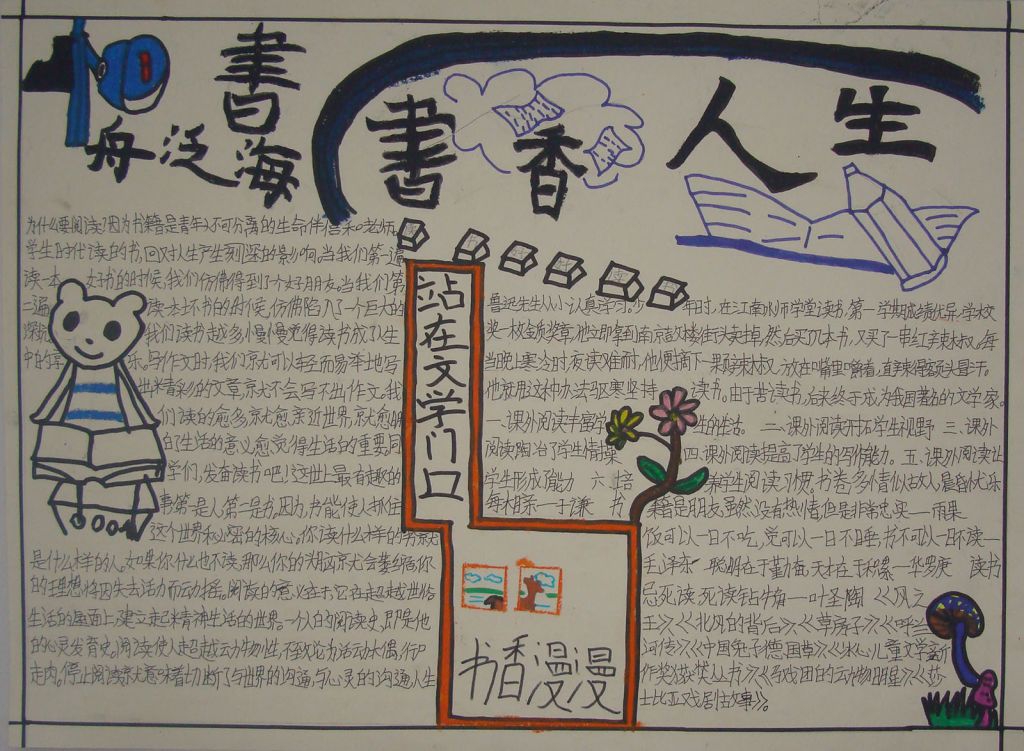 書香人生
書海泛舟
为什么要阅读？因为书籍是青年人不可分离的生命伴侣和老师。
学生时代读的书，回对人生产生刻深的影响。当我们第一遍
读一本好书的时候，我们仿佛得到了个好朋友。当我们第
二遍读一本坏书的时候，仿佛陷入了一个巨大的
我们读书越多慢慢觉得读书成了人生
中的享乐。写作文时，我们就可以轻而易举地写
精彩的文章，就不会写不出作文。我
们读的愈多就愈亲近世界，就愈明
白了生活的意义愈觉得生活的重要。同
学们，发奋读书吧！这世上最有趣的
事第一是人第二是书，因为书能使人抓住
这个世界秘密的核心。你读什么样的书就
是什么样的人。如果你什么也不读，那么你的大脑就会萎缩你
的理想将因失去活力而动摇。阅读的意义在于：它在超越世俗
生活的层面上，建立起精神生活的世界。一个人的阅读史，即是他
的心灵发育史。阅读使人超越动物性，不致沦为活动大偶，行尸
走肉。停止阅读就意味着切断了与世界的沟通，与心灵的沟通，人生
站在文学门口
鲁迅先生从小认真学习。少年时，在江南水师学堂读书，第一学期成绩优异，学校
奖一枚金质奖章，他立即拿到南京鼓楼街头卖掉，然后买几本书，又买了一串红辣椒。每
当晚上寒冷时，夜读难耐，他便摘下一颗辣椒，放在嘴里嚼着，直辣得额头冒汗。
他就用这种办法驱寒坚持读书。由于苦读书，后来终于成为我国著名的文学家。
一、课外阅读丰富学生的生活。 二、课外阅读开拓学生视野 三、课外
阅读陶冶了学生情操 四、课外阅读提高了学生的写作能力。五、课外阅读让
学生形成了能力 六、培养学生阅读习惯，书卷多情似故人，晨昏忧乐
每相亲——于谦 书籍是朋友，虽然没有热情，但是非常忠实——雨果
饭可以一日不吃，觉可以一日不睡，书不可以一日不读—
毛泽东 聪明在于勤奋，天才在于积累—华罗庚 读书
忌死读，死读钻牛角——叶圣陶 《风之
王》《北风的背后》《草房子》《呼兰
河传》《中国兔子德国草》《冰心儿童文学新
作奖获奖丛书》《马戏团的动物明星》《莎
士比亚戏剧故事》。
书香漫漫